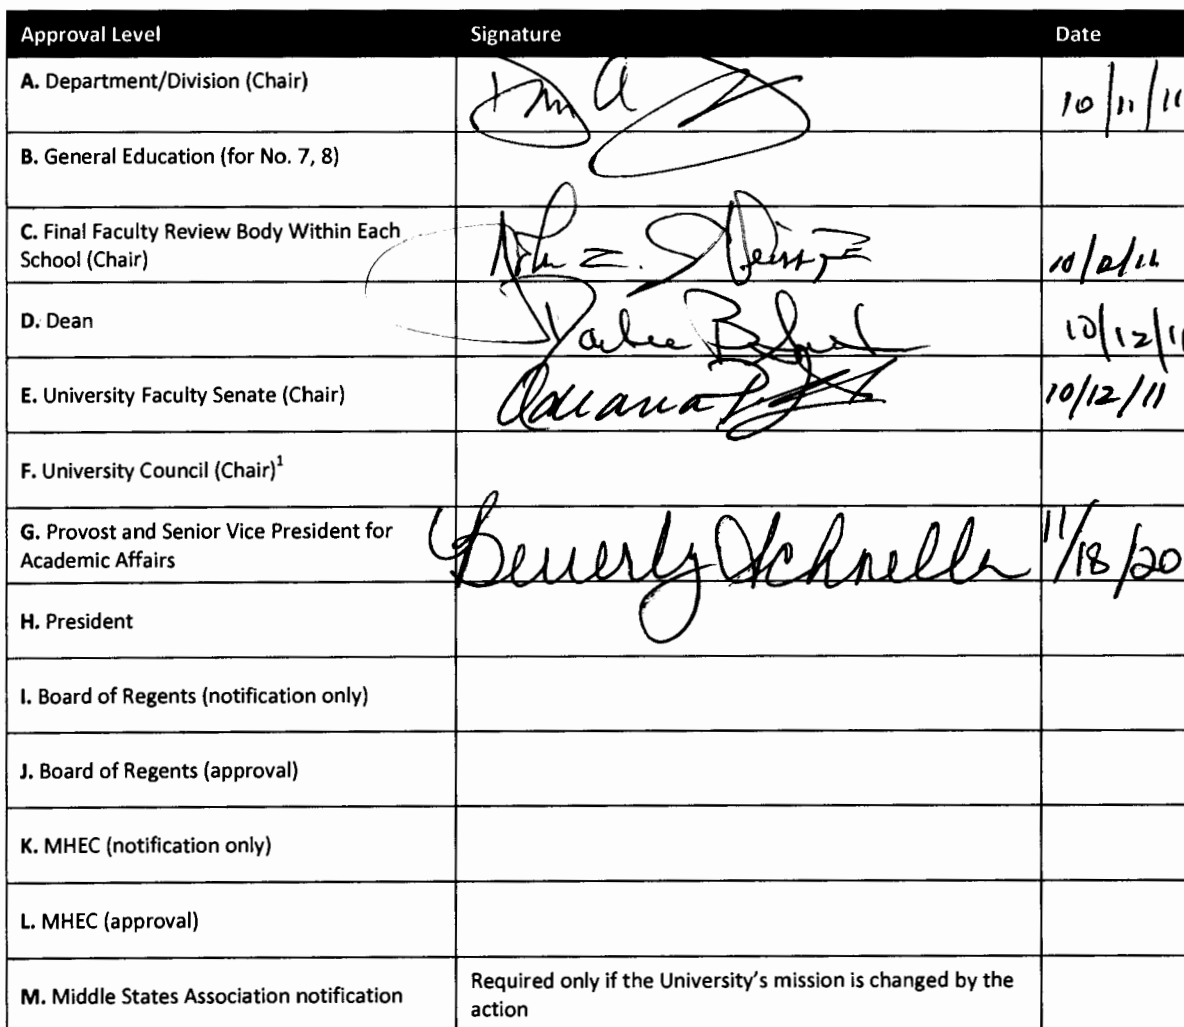 Approval Level Signature Date
A. Department/Division (Chair) 10/11/11
B. General Education (for No. 7, 8)
C. Final Faculty Review Body Within Each
School (Chair)
D. Dean 10/12/11
E. University Faculty Senate (Chair) 10/12/11
F. University Council (Chair)1
G. Provost and Senior Vice President for Beverly Schnelle 11/18/20
Academic Affairs
H. President
I. Board of Regents (notification only)
J. Board of Regents (approval)
K. MHEC (notification only)
L. MHEC (approval)
M. Middle States Association notification Required only if the University's mission is changed by the
action